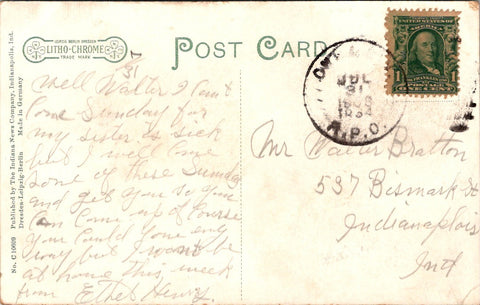 LEIPZIG BERLIN DRESDEN
LITHO-CHROME
TRADE MARK
POST CARD
7/31
Well Walter I Cant
Come Sunday for
my sister is sick
but I will come
some of these Sunday
and get you so you
Can Come up of Course
you Could Come any
way but I wont be
at home this week
from Ethel Henry.
Mr Walter Bratton
537 Bismark St
Indianaplois
Ind
JUL
31
R.P.O.
UNITED STATES OF AMERICA
FRANKLIN
1 1
POSTAGE
ONE CENT
No. C 10699 Published by The Indiana News Company, Indianapolis, Ind.
Dresden-Leipzig-Berlin Made in Germany